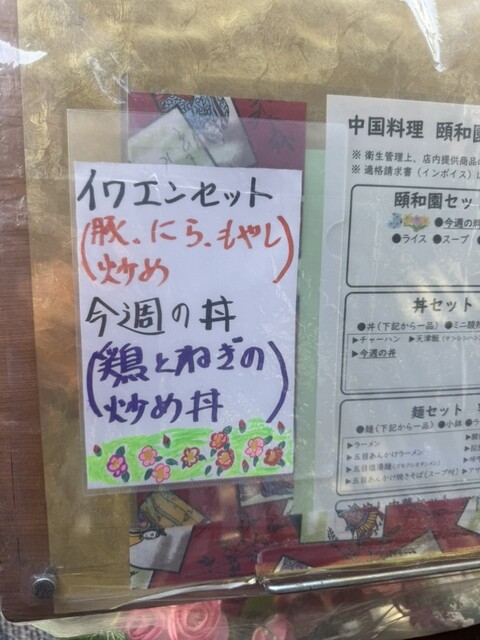 イワエンセット
(豚、にら、もやし
炒め)
今週の丼
(鶏とねぎの
炒め丼)
中国料理 頤和園
※ 衛生管理上、店内提供商品
※ 適格請求書(インボイス)
頤和園セッ
●今週の料
●ライス ●スープ
丼セット
●丼(下記から一品) ●ミニ酸辣
▶チャーハン ▶天津飯
▶今週の丼
麺セット
●麺(下記から一品) ●小鉢
▶ラーメン
▶五目あんかけラーメン
▶五目塩湯麺
▶五目あんかけ焼きそば(スープ付)